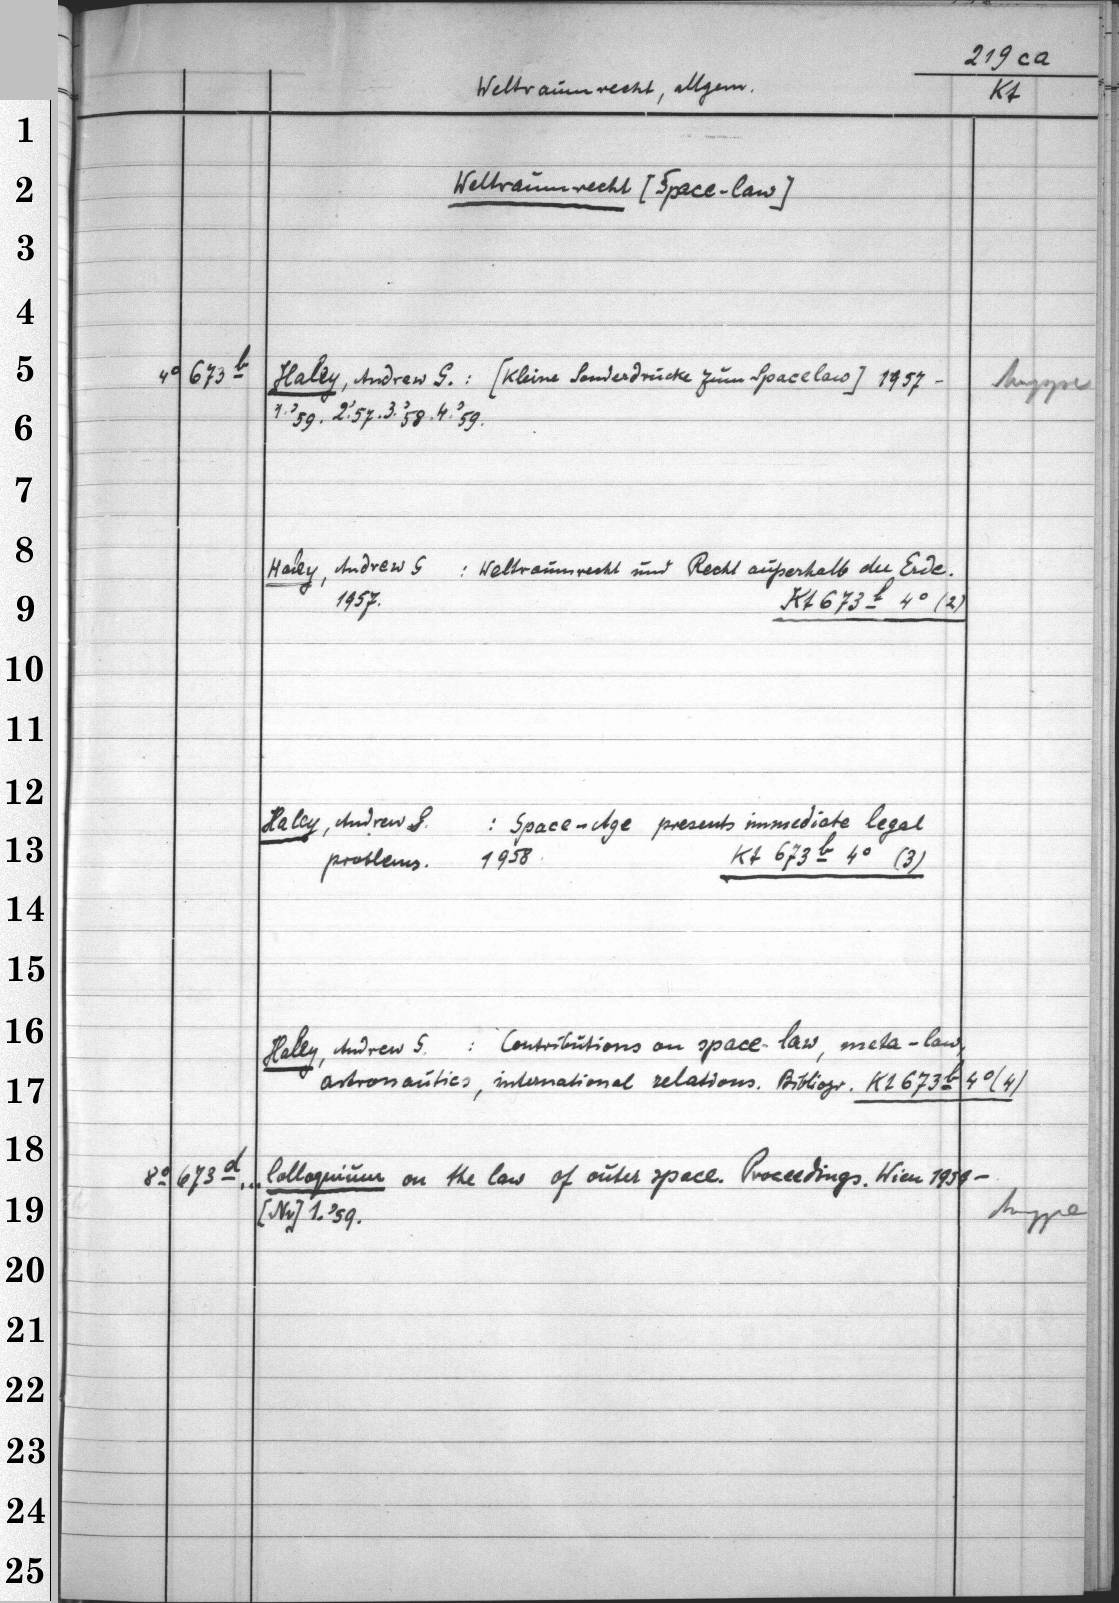 219 ca
Weltraumrecht, allgem.
Kt
1
2 Weltraumrecht [Space-law]
3
4
5 4° 673 b Haley, Andrew G. : [Kleine Sonderdrucke zum Spacelaw] 1957 -
6 1.'59. 2.'57. 3.'58. 4.'59.
7
8 Haley, Andrew G : Weltraumrecht und Recht außerhalb der Erde.
9 1957. Kt 673 b 4° (2)
10
11
12
Haley, Andrew G. : Space-Age presents immediate legal
13 problems. 1958. Kt 673 b 4° (3)
14
15
16 Haley, Andrew G. : Contributions on space-law, meta-law,
17 astronautics, international relations. Bibliogr. Kt 673 b 4° (4)
18
8° 673 d, .. Colloquium on the law of outer space. Proceedings. Wien 1959 -
19 [Nr] 1.'59.
20
21
22
23
24
25